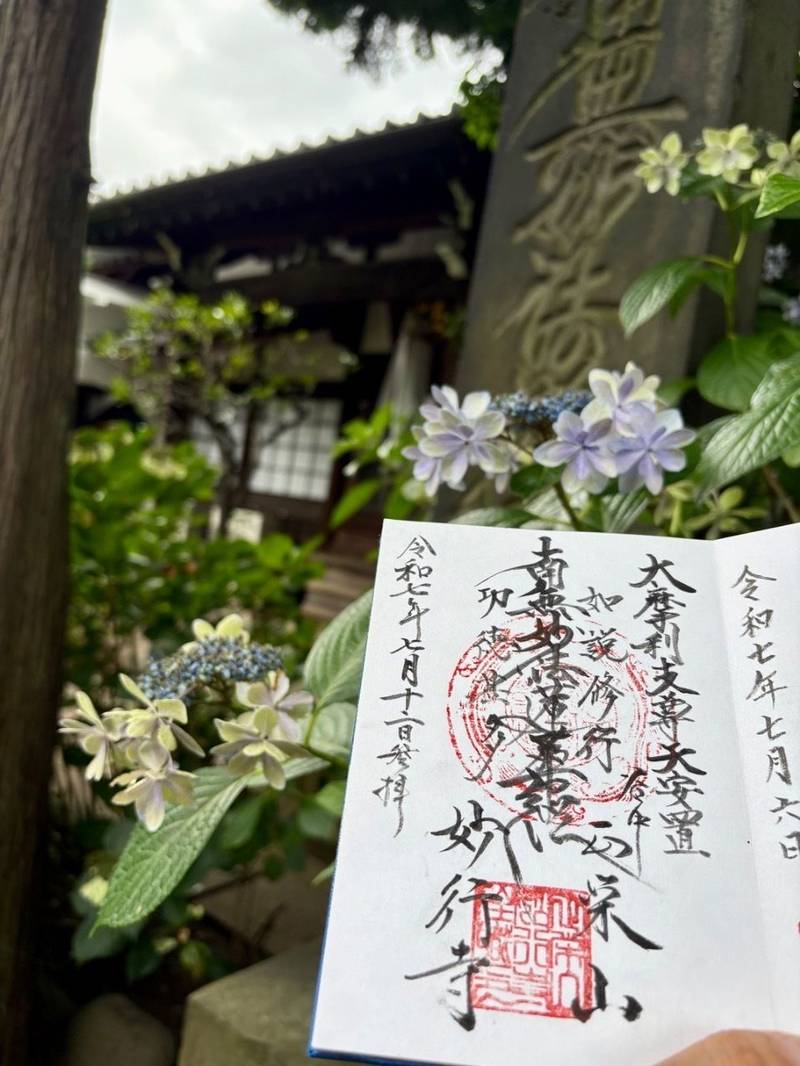 南無妙法
令和七年七月六日
大摩利支尊天安置
如説修行
南無妙法蓮華経
功徳甚多
正栄山
妙行寺
令和七年七月十二日参拝